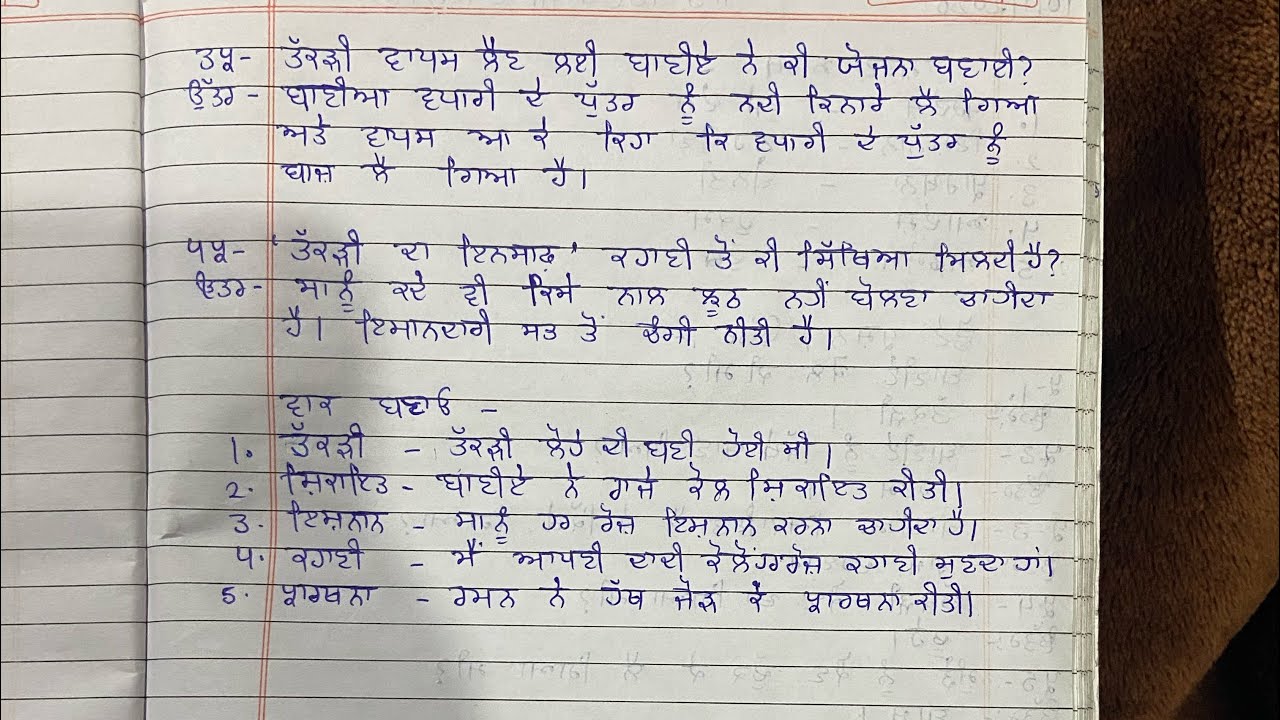 ੩ਪ੍ਰ- ਤੱਕੜੀ ਵਾਪਸ ਲੈਣ ਲਈ ਬਾਣੀਏ ਨੇ ਕੀ ਯੋਜਨਾ ਬਣਾਈ?
ਉੱਤਰ- ਬਾਣੀਆ ਵਪਾਰੀ ਦੇ ਪੁੱਤਰ ਨੂੰ ਨਦੀ ਕਿਨਾਰੇ ਲੈ ਗਿਆ
ਅਤੇ ਵਾਪਸ ਆ ਕੇ ਕਿਹਾ ਕਿ ਵਪਾਰੀ ਦੇ ਪੁੱਤਰ ਨੂੰ
ਬਾਜ਼ ਲੈ ਗਿਆ ਹੈ।
੫ਪ੍ਰ- 'ਤੱਕੜੀ ਦਾ ਇਨਸਾਫ਼' ਕਹਾਣੀ ਤੋਂ ਕੀ ਸਿੱਖਿਆ ਮਿਲਦੀ ਹੈ?
ਉਤਰ- ਸਾਨੂੰ ਕਦੇ ਵੀ ਕਿਸੇ ਨਾਲ ਝੂਠ ਨਹੀਂ ਬੋਲਣਾ ਚਾਹੀਦਾ
ਹੈ। ਇਮਾਨਦਾਰੀ ਸਭ ਤੋਂ ਚੰਗੀ ਨੀਤੀ ਹੈ।
ਵਾਕ ਬਣਾਓ -
1. ਤੱਕੜੀ - ਤੱਕੜੀ ਲੋਹੇ ਦੀ ਬਣੀ ਹੋਈ ਸੀ।
2. ਸ਼ਿਕਾਇਤ - ਬਾਣੀਏ ਨੇ ਰਾਜੇ ਕੋਲ ਸ਼ਿਕਾਇਤ ਕੀਤੀ।
੩. ਇਸ਼ਨਾਨ - ਸਾਨੂੰ ਹਰ ਰੋਜ਼ ਇਸ਼ਨਾਨ ਕਰਨਾ ਚਾਹੀਦਾ ਹੈ।
੫. ਕਹਾਣੀ - ਮੈਂ ਆਪਣੀ ਦਾਦੀ ਕੋਲੋਂ ਹਰ ਰੋਜ਼ ਕਹਾਣੀ ਸੁਣਦਾ ਹਾਂ।
5. ਪ੍ਰਾਰਥਨਾ - ਰਮਨ ਨੇ ਹੱਥ ਜੋੜ ਕੇ ਪ੍ਰਾਰਥਨਾ ਕੀਤੀ।